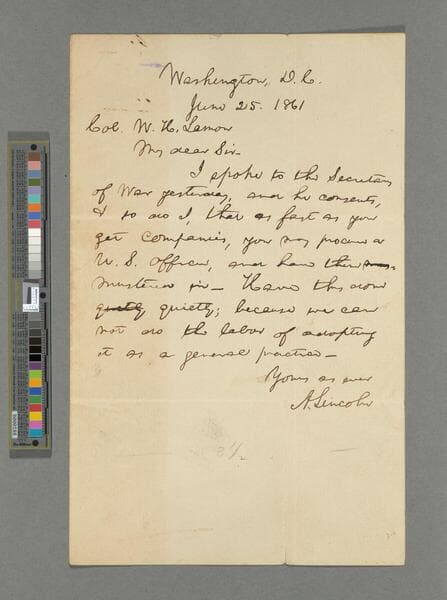 Washington, D.C.
June 25. 1861
Col. W. H. Lamon
My dear Sir-
I spoke to the Secretary
of War yesterday, and he consents,
& so do I, that as fast as you
get Companies, you may procure a
U. S. officer, and have them
mustered in- Have this done
quietly; because we can
not do the labor of adopting
it as a general practice-
Yours as ever
A. Lincoln